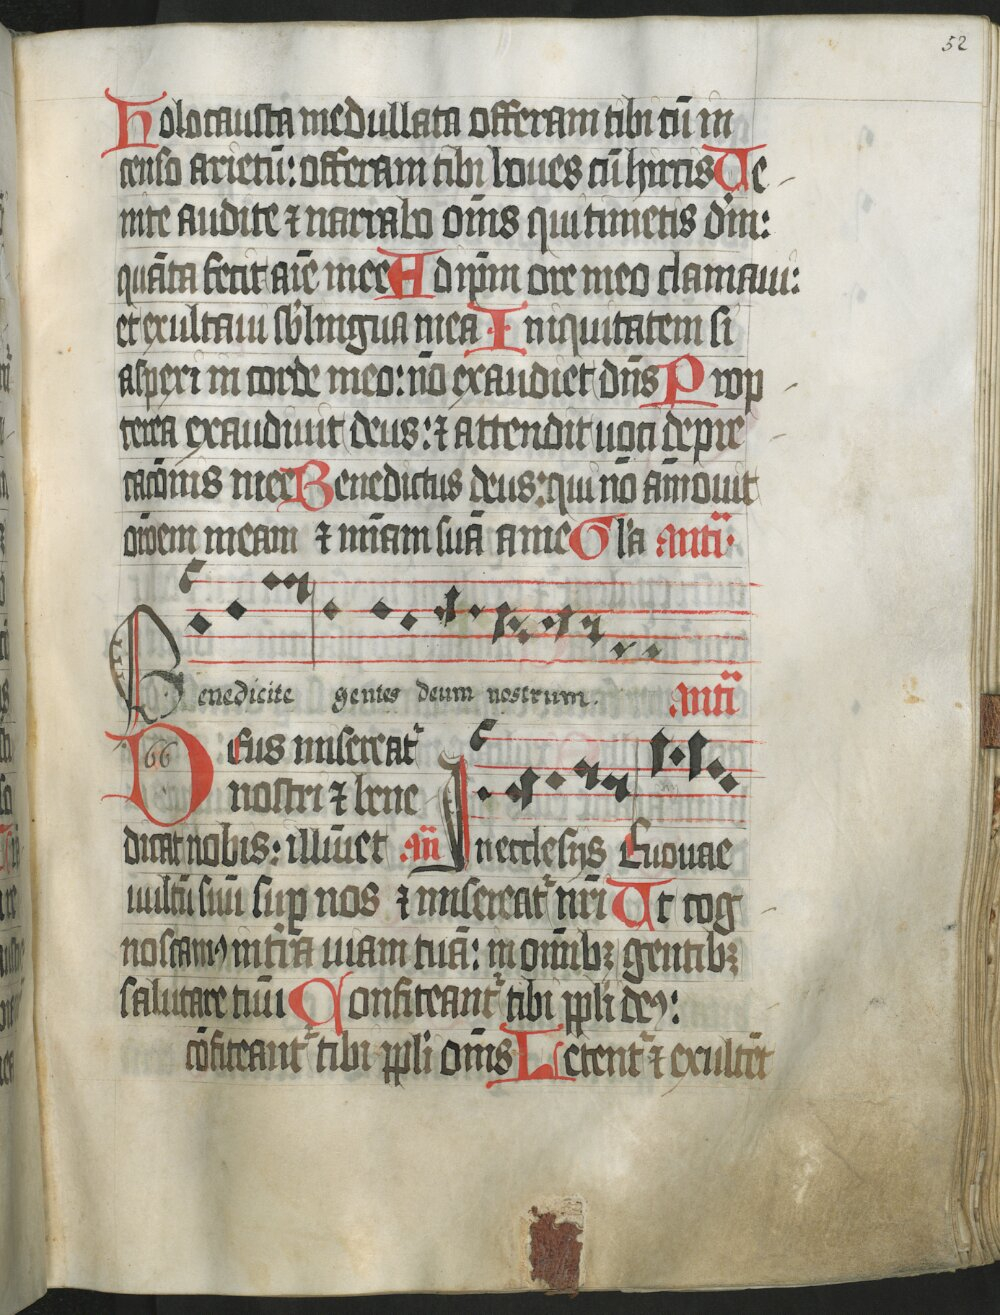 52
Holocausta medullata offeram tibi cū in
censo arietū: offeram tibi boues cū hircis Ve
nite audite ⁊ narrabo om̄s qui timetis dm̄:
quāta fecit aīe mee Ad ip̄m ore meo clamaui:
et exultaui sb̓ lingua mea Iniquitatem si
aspexi in corde meo: nō exaudiet dn̄s Prop
terea exaudiuit deus: ⁊ attendit uoci depre
cacōnis mee Benedictus deus: qui nō āmouit
orōem meam ⁊ mīam suā a me Gl'a anti
Benedicite gentes deum nostrum. anti
66 Deus misereat᷑
nostri ⁊ bene
dicat nobis: illūīet an̄ In ecclesijs Euouae
uultū suū sup nos ⁊ misereat᷑ nr̄i Ut cog
noscamꝰ in t̄ra uiam tuā: in om̄ibꝫ gentibꝫ
salutare tuū Confiteant᷑ tibi ppl̓i deꝰ:
cōfiteant᷑ tibi ppl̓i om̄s Letent᷑ ⁊ exultēt